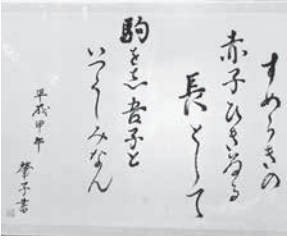 すめらきの
赤子ひきゐる
長として
駒をも吾子と
いつくしみなん
平成甲午 肇子書